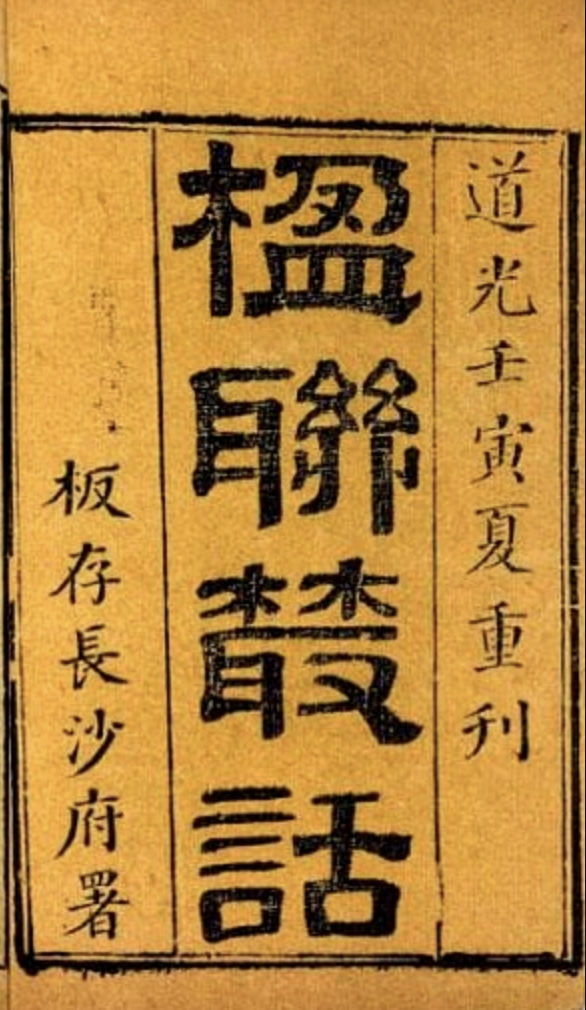 道光壬寅夏重刊
楹聯叢話
板存長沙府署